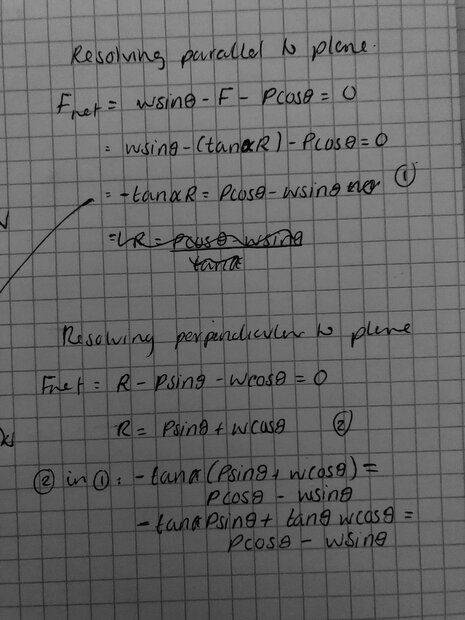 Resolving parallel to plane.
Fnet = wsinθ - F - Pcosθ = 0
= wsinθ - (tanαR) - Pcosθ = 0
= -tanαR = Pcosθ - wsinθ ①
=
R = Pcosθ - wsinθ
tanα
Resolving perpendicular to plane
Fnet = R - Psinθ - wcosθ = 0
R = Psinθ + wcosθ ②
② in ①: -tanα(Psinθ + wcosθ) =
Pcosθ - wsinθ
-tanαPsinθ + tanθ wcosθ =
Pcosθ - wsinθ